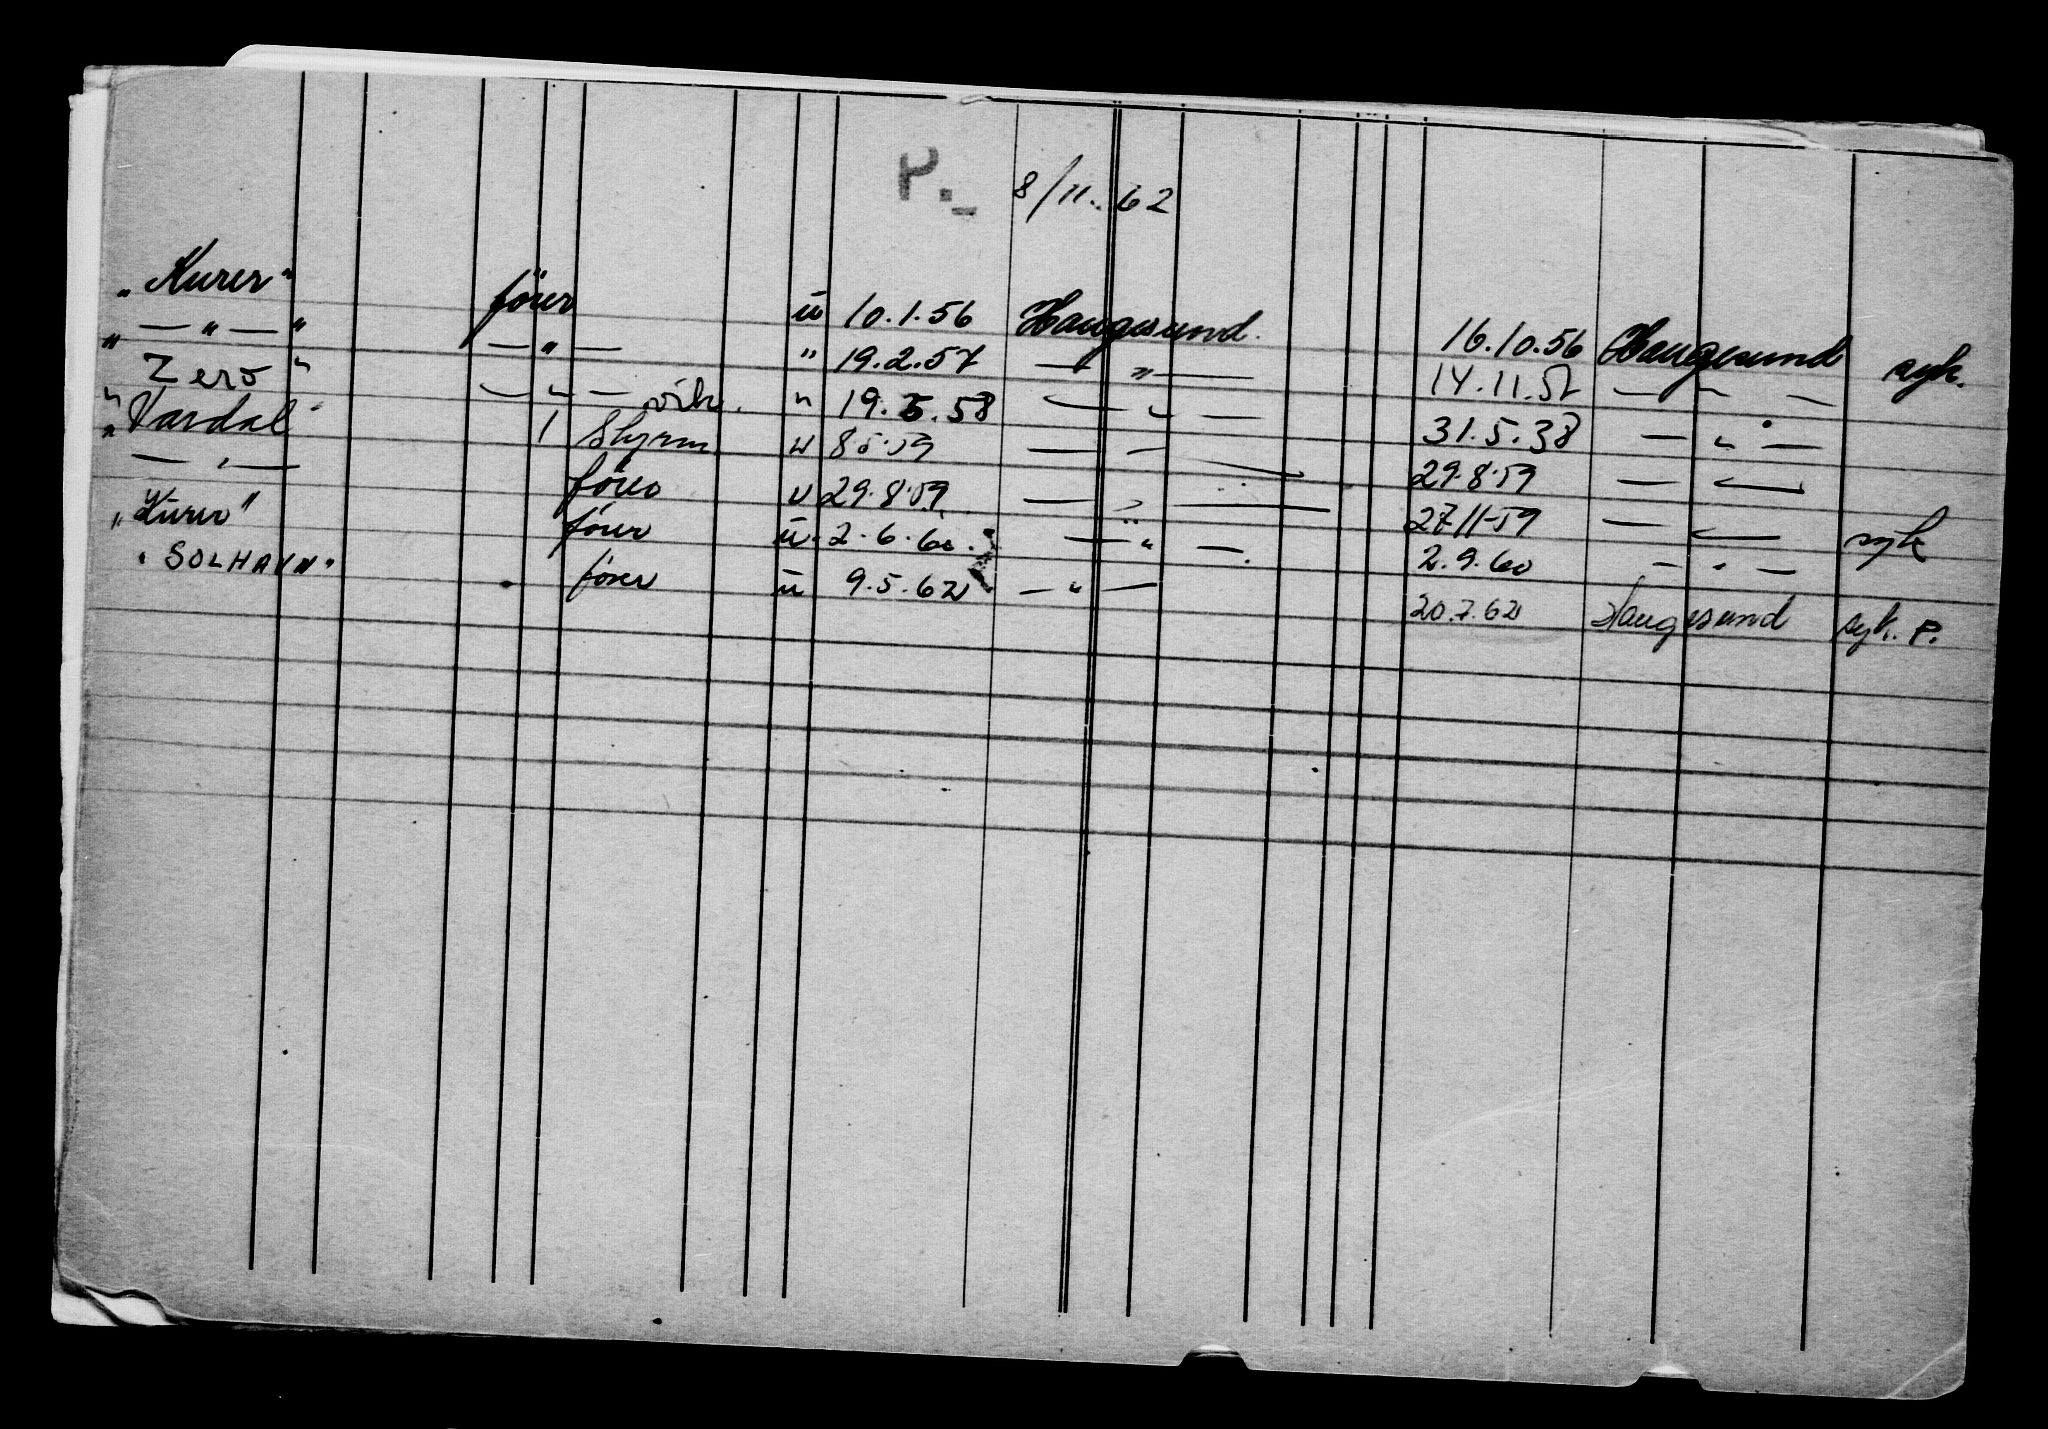 P._ 8/11. 62
"Kurer" fører u 10.1.56 Haugesund. 16.10.56 Haugesund syk.
" — " — " — " — " 19.2.57 — " — 14.11.57 — " —
" Zero " — " — vik. " 19.5.58 — " — 31.5.38 — " —
"Vardal" 1 Styrm. u 8.5.59 — " — 29.8.59 — " —
— " — fører u 29.8.59 — " — 27.11.59 — " — syk
"Kurer" fører u. 2.6.60. — " — 2.9.60 — " —
"SOLHAVN" fører u 9.5.62 — " — 20.7.62 Haugesund syk. P.